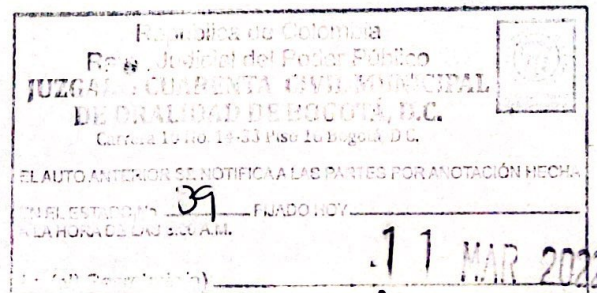 República de Colombia
Rama Judicial del Poder Público
JUZGADO CUARENTA CIVIL MUNICIPAL
DE ORALIDAD DE BOGOTÁ, D.C.
Carrera 10 No. 14-33 Piso 16 Bogotá D.C.
EL AUTO ANTERIOR SE NOTIFICA A LAS PARTES POR ANOTACIÓN HECHA
EN EL ESTADO No 39 FIJADO HOY
A LA HORA DE LAS 8:00 A.M.
11 MAR 2022
(Secretario)